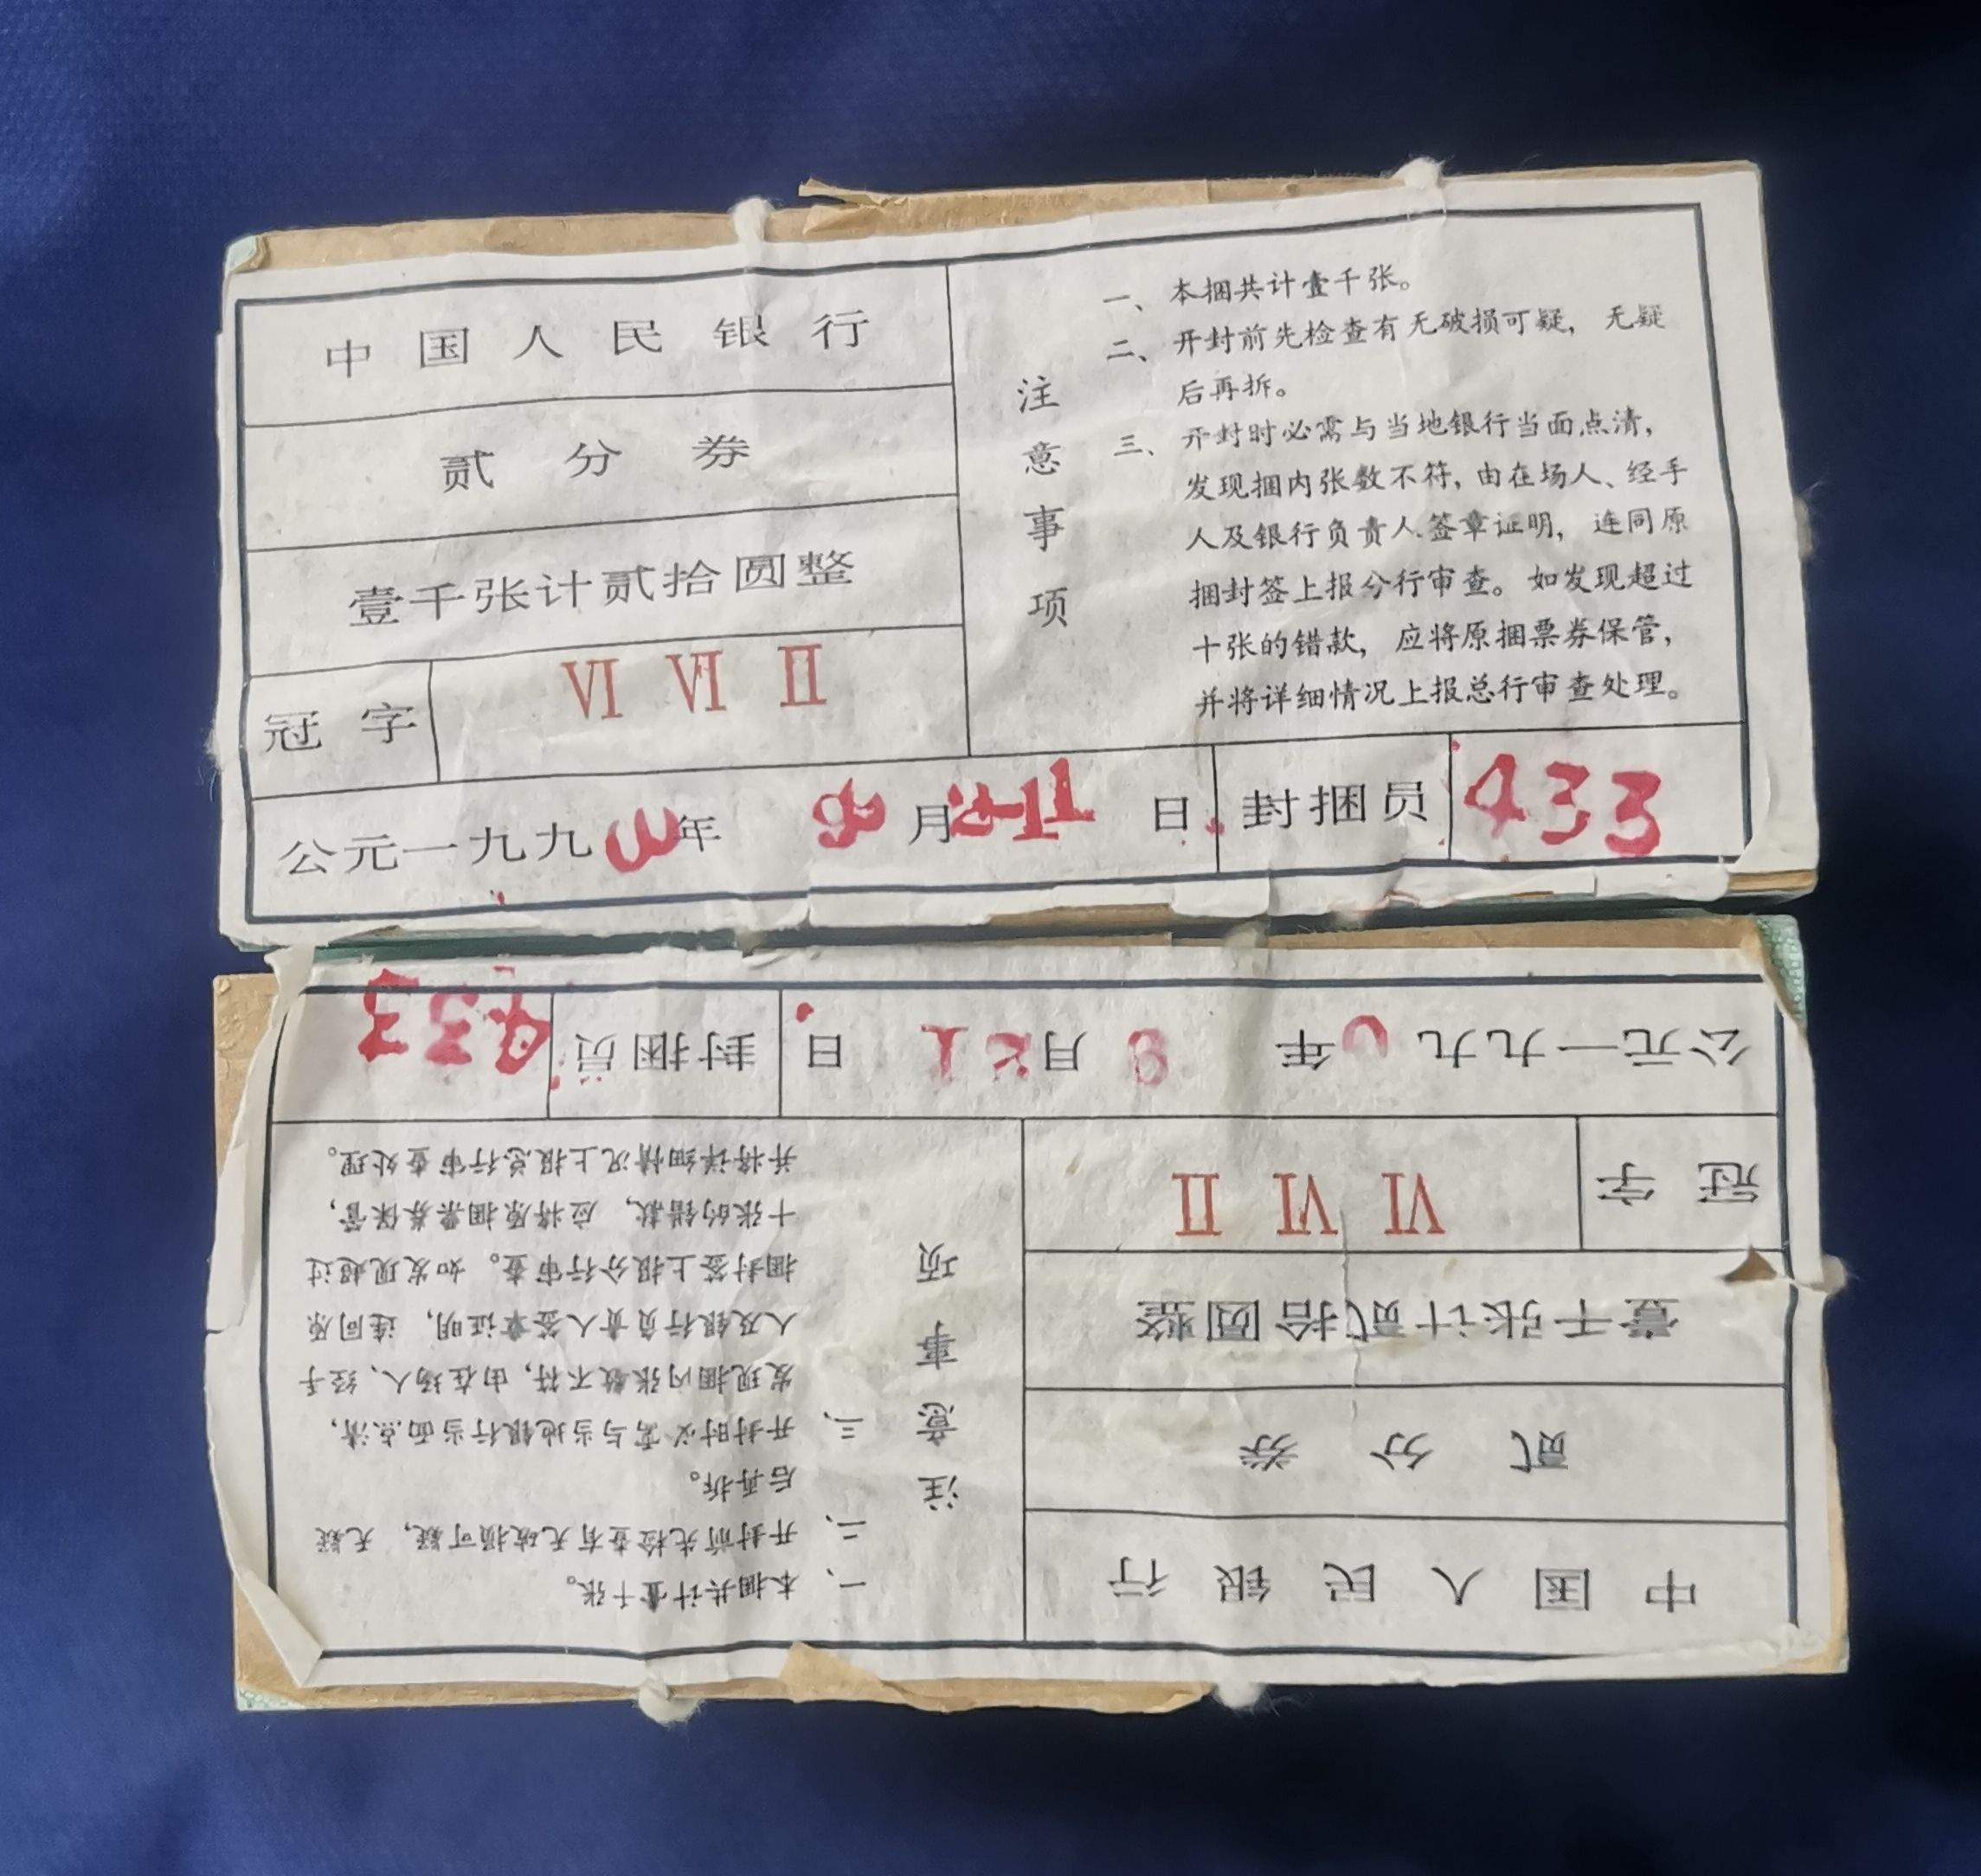 中国人民银行
贰分券
壹千张计贰拾圆整
冠字 VI VI II
注意事项
一、本捆共计壹千张。
二、开封前先检查有无破损可疑，无疑
后再拆。
三、开封时必需与当地银行当面点清，
发现捆内张数不符，由在场人、经手
人及银行负责人签章证明，连同原
捆封签上报分行审查。如发现超过
十张的错款，应将原捆票券保管，
并将详细情况上报总行审查处理。
公元一九九 年 月 日 封捆员 433
中国人民银行
贰分券
壹千张计贰拾圆整
冠字 VI VI II
注意事项
一、本捆共计壹千张。
二、开封前先检查有无破损可疑，无疑
后再拆。
三、开封时必需与当地银行当面点清，
发现捆内张数不符，由在场人、经手
人及银行负责人签章证明，连同原
捆封签上报分行审查。如发现超过
十张的错款，应将原捆票券保管，
并将详细情况上报总行审查处理。
公元一九九0年 月 日 封捆员 433